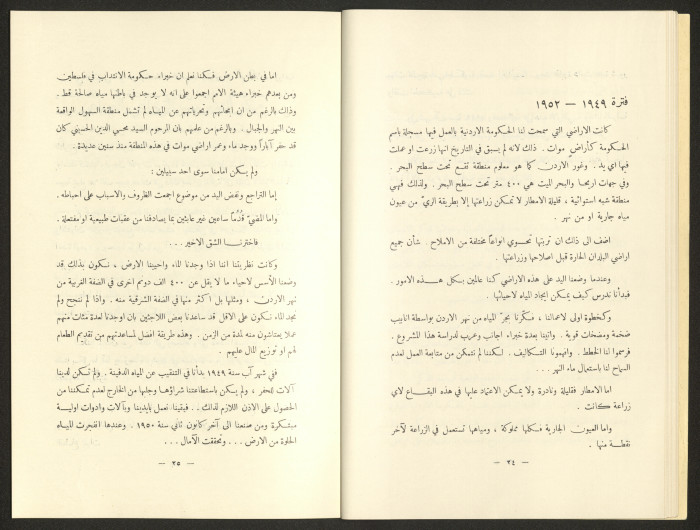 فترة ١٩٤٩ — ١٩٥٢
كانت الاراضي التي سمحت لنا الحكومة الاردنية بالعمل فيها مسجلة باسم
الحكومة كأراضٍ موات . ذلك لانه لم يسبق في التاريخ انها زرعت او عملت
فيها اي يد . وغور الاردن كما هو معلوم منطقة تقع تحت سطح البحر .
وفي جهات اريحا والبحر الميت هي ٤٠٠ متر تحت سطح البحر . ولذلك فهي
منطقة شبه استوائية ، قليلة الامطار لا تمكن زراعتها إلا بطريقة الريّ من عيون
مياه جارية او من نهر .
اضف الى ذلك ان تربتها تحوي انواعاً مختلفة من الاملاح . شأن جميع
اراضي البلدان الحارة قبل اصلاحها وزراعتها .
وعندما وضعنا اليد على هذه الاراضي كنا عالمين بكل هذه الامور .
فبدأنا ندرس كيف يمكن ايجاد المياه لاحيائها .
وكخطوة اولى لاعمالنا ، فكّرنا بجرّ المياه من نهر الاردن بواسطة انابيب
ضخمة ومضخات قوية . واتينا بعدة خبراء اجانب وعرب لدراسة هذا المشروع .
فرسموا لنا الخطط . وافهمونا التكاليف . لكننا لم نتمكن من متابعة العمل لعدم
السماح لنا باستعمال ماء النهر ...
اما الامطار فقليلة ونادرة ولا يمكن الاعتماد عليها في هذه البقاع لاي
زراعة كانت .
واما العيون الجارية فكلها مملوكة ، ومياهها تستعمل في الزراعة لآخر
نقطة منها .
— ٢٤ —
اما في بطن الارض فكنا نعلم ان خبراء حكومة الانتداب في فلسطين
ومن بعدهم خبراء هيئة الامم اجمعوا على انه لا يوجد في باطنها مياه صالحة قط .
وذلك بالرغم من ان ابحاثهم وتحرياتهم عن المياه لم تشمل منطقة السهول الواقعة
بين النهر والجبال . وبالرغم من علمهم بان المرحوم السيد محسي الدين الحسيني كان
قد حفر آباراً ووجد ماء وعمر اراضي موات في هذه المنطقة منذ سنين عديدة .
ولم يكن امامنا سوى احد سبيلين :
إما التراجع ونفض اليد من موضوع اجمعت الظروف والاسباب على احباطه .
واما المضيّ قُدُماً ساعين غير عابئين بما يصادفنا من عقبات طبيعية او مفتعلة .
فاخترنا الشق الاخير ...
وكانت نظريتنا اننا اذا وجدنا الماء واحيينا الارض ، نكون بذلك قد
وضعنا الأسس لاحياء ما لا يقل عن ٤٠٠ الف دونم اخرى في الضفة الغربية من
نهر الاردن ، ومثلها بل اكثر منها في الضفة الشرقية منه . واذا لم ننجح ولم
نجد الماء نكون على الاقل قد ساعدنا بعض اللاجئين بان اوجدنا لعدة مئات منهم
عملاً يعتاشون منه لمدة من الزمن . وهذه طريقة افضل لمساعدتهم من تقديم الطعام
لهم او توزيع المال عليهم .
في شهر آب سنة ١٩٤٩ بدأنا في التنقيب عن المياه الدفينة . ولم تكن لدينا
آلات للحفر ، ولم يكن باستطاعتنا شراؤها وجلبها من الخارج لعدم تمكننا من
الحصول على الاذن اللازم لذلك .. فبقينا نعمل بأيدينا وبآلات وادوات اولية
مبتكرة ومن صنعنا الى آخر كانون ثاني سنة ١٩٥٠ . وعندها انفجرت المياه
الحلوة من الارض ... وتحققت الآمال ...
— ٢٥ —